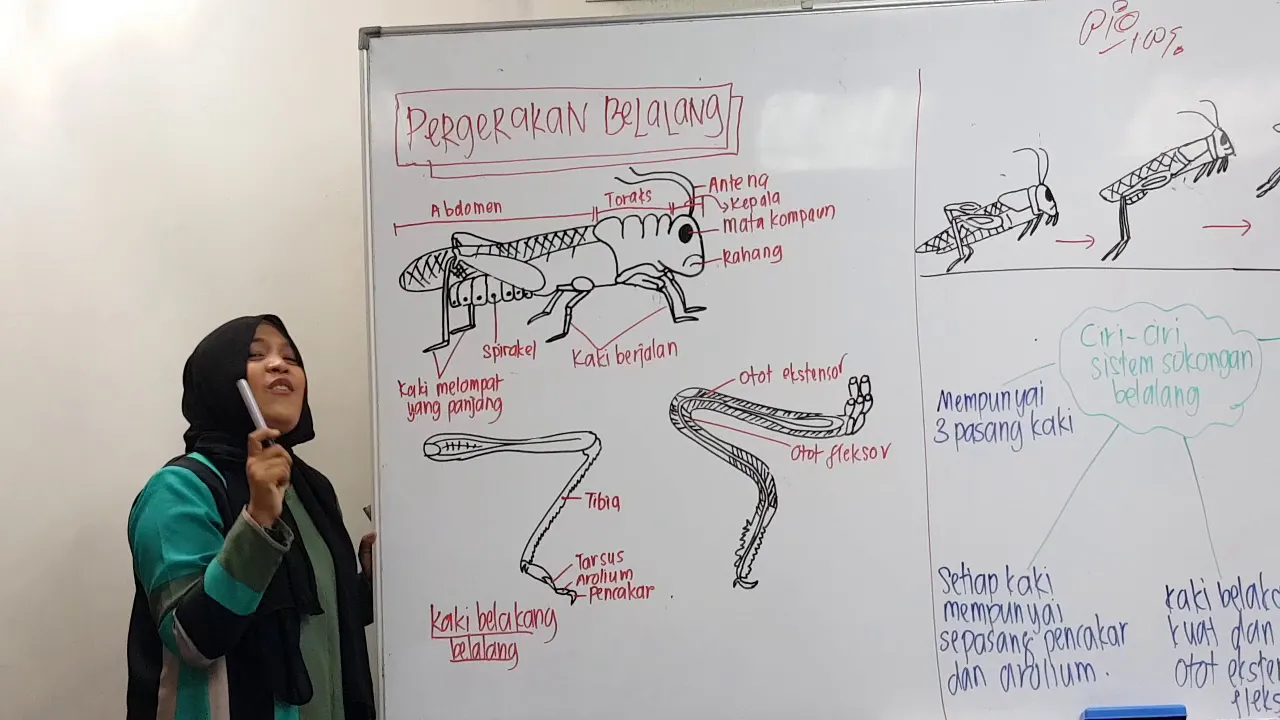 PERGERAKAN BELALANG
Abdomen
Toraks
Antena
Kepala
Mata kompaun
Rahang
Spirakel
Kaki berjalan
Kaki melompat
yang panjang
Otot ekstensor
Otot fleksor
Tibia
Tarsus
Arolium
Pencakar
Kaki belakang
belalang
100%
Ciri-ciri
sistem sokongan
belalang
Mempunyai
3 pasang kaki
Setiap kaki
mempunyai
sepasang pencakar
dan arolium.
kaki
kuat dan
Otot